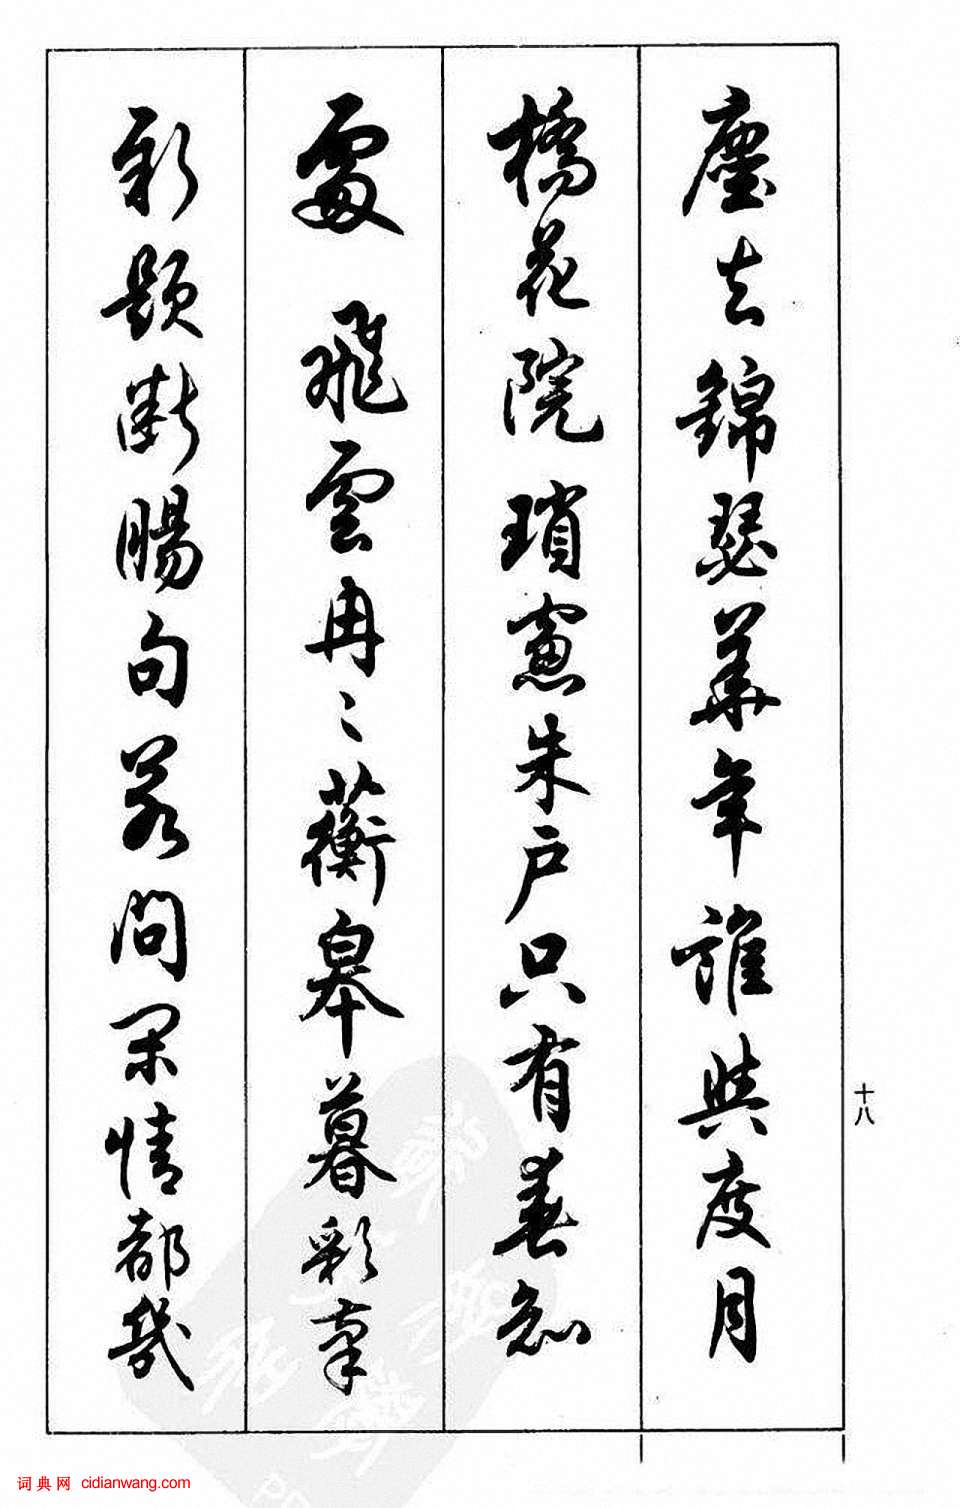 塵去錦瑟華年誰與度月
橋花院瑣窻朱戶只有春知
處 飛雲冉〻蘅皋暮彩筆
新題斷腸句若問閑情都幾
十八
词典网 cidianwang.com